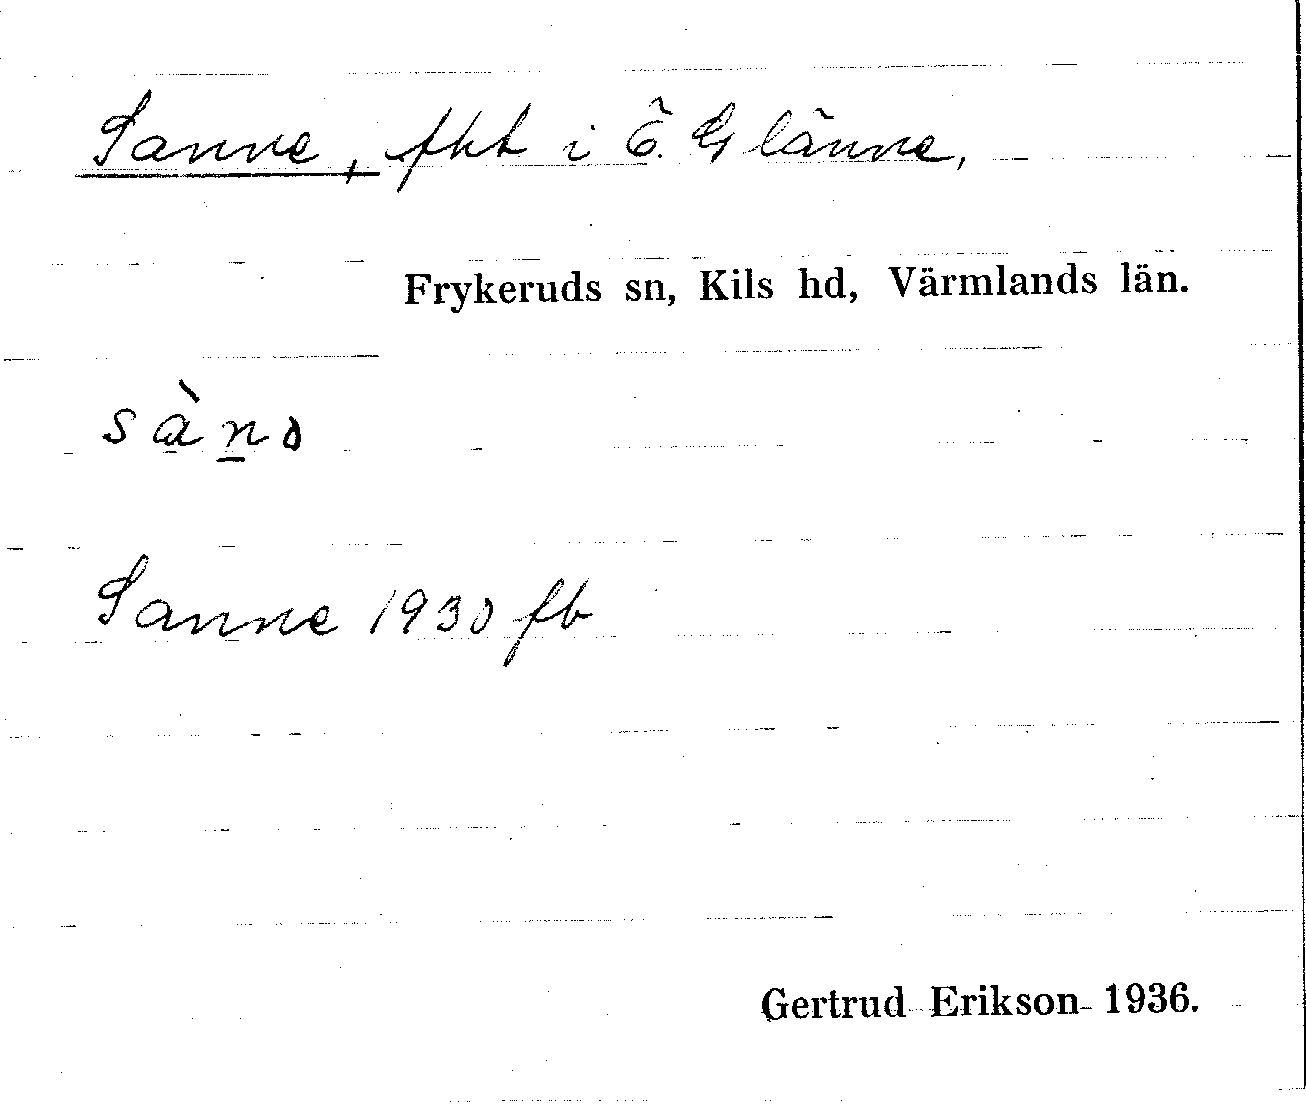 Sanne, fkt i Ö. Glänne,
Frykeruds sn, Kils hd, Värmlands län.
Sanne 1930 fb
Gertrud Erikson 1936.